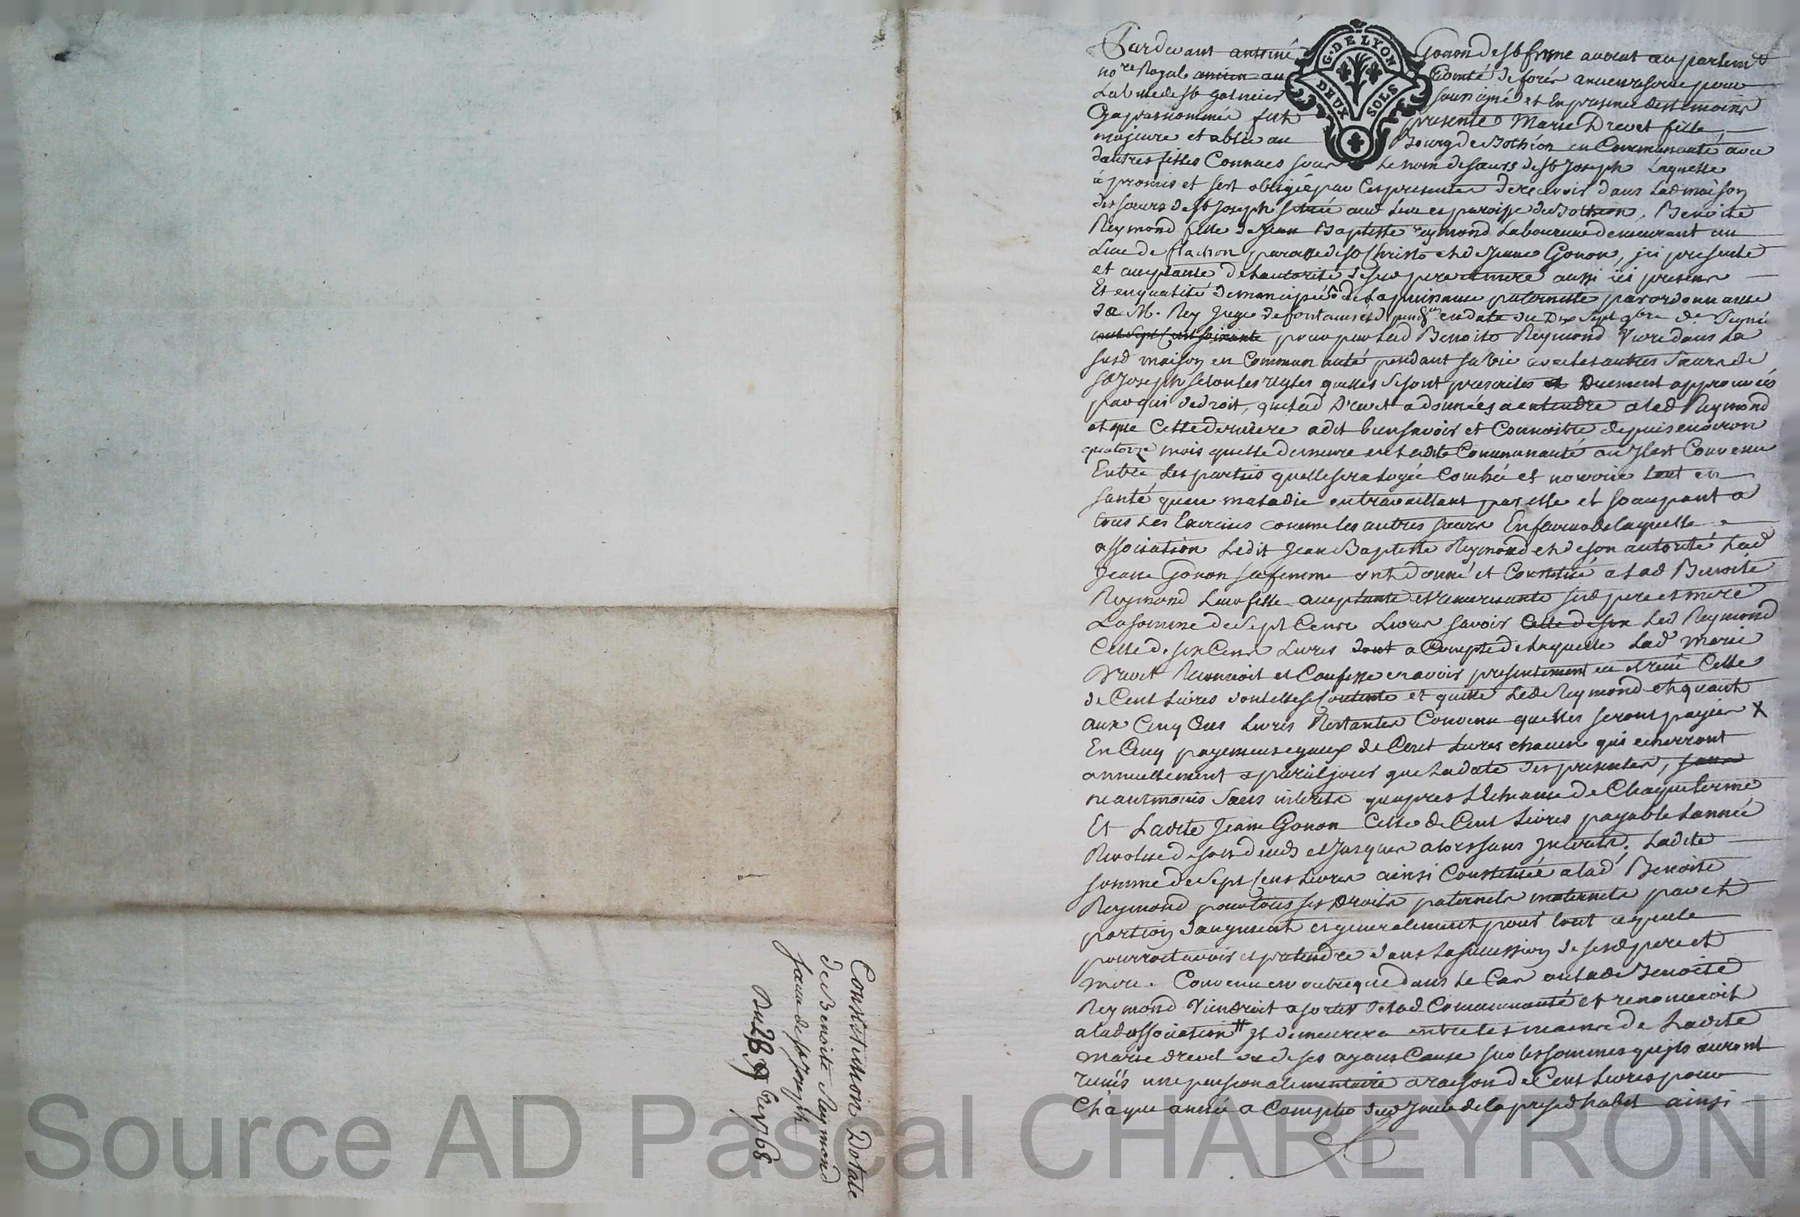 Constitution Dotale
de Benoite Reymond
sœur de st Joseph
Du 28 9bre 1768
G. DE LYON
DEUX SOLS
Pardevant antoine Gonon de st frene avocat au parlemt
nore Royal ancien au Comté de forés ancien reserve pour
La ville de st Galmier soussigné et En presence des temoins
Cy apres nommés fut presente Marie Drevet fille
majeure etablie au Bourg de Bothéon en Communauté avec
dautres filles Connues sous Le nom de sœurs de st Joseph Laquelle
à promis et sest obligée par Ces presentes de recevoir dans Lad maison
des sœurs de st Joseph située aud Lieu et paroisse de Bothéon, Benoite
Reymond fille de Jean Baptiste reymond Laboureur demeurant au
Lieu de flachon paroisse de st Christo et de Jeanne Gonon, ici presente
et acceptante de Lautorité de ses pere et mere aussi ici presens
Et en qualité demancipée de La puissance paternelle par ordonnance
de M. Rey Juge de fontanés en date du Dix Sept 9bre
pour par Lad Benoite Reymond Vivre dans La
susd maison en Communauté pendant sa vie avec les autres Sœurs de
st Joseph selon les regles quelles se sont prescrites et Duement approuvées
par qui de droit, que Lad Drevet a données a entendre a Lad Reymond
et que Cette derniere a dit bien savoir et Connoitre depuis environ
quatorze mois quelle demeure en Ladite Communauté ou Il est Convenu
Entre Les parties quelle sera Logée Couchée et nourrie tant en
santé quen maladie en travaillant par elle et soccupant a
tous Les Exercices comme les autres sœurs En faveur de laquelle
association Ledit Jean Baptiste Reymond et de son autorité Lad
Jeanne Gonon sa femme ont donné et Constitué a Lad Benoite
Reymond Leur fille acceptante et remerciante sesd pere et mere
La somme de Sept Cens Livres savoir Led Reymond
Celle de six Cens Livres a Compte de Laquelle Lad Marie
Drevet Reconnoit et Confesse en avoir presentement eu et recu Celle
de Cent Livres dont elle se Contente et quitte Led Reymond et quant
aux Cinq Cens Livres Restantes Convenu quelles seront payées X
En Cinq payemens egaux de Cent Livres chacun qui echerront
annuellement a pareil jour que La date des presentes,
neantmoins Sans interets quapres Lecheance de Chaque terme
Et Ladite Jeanne Gonon Celle de Cent Livres payable Lannée
Revolue de son decés et Jusques alors sans Interets. Ladite
somme de Sept Cens Livres ainsi Constituée a Lad Benoite
Reymond pour tous ses Droits paternels maternels part et
portion daugment et generalement pour tout ce quelle
pourroit avoir et pretendre dans La succession de sesd pere et
mere. Convenu en outre que dans Le Cas ou Lade Benoite
Reymond Viendroit a sortir de Lad Communauté et renonceroit
a lad association # Il demeurera entre Les mains de Ladite
Marie drevet ou de ses ayans Cause sur les sommes quils auront
recues une pension alimentaire a raison de Cent Livres pour
Chaque année a Compter du Jour de la prise dhabit ainsi
Source AD Pascal CHAREYRON